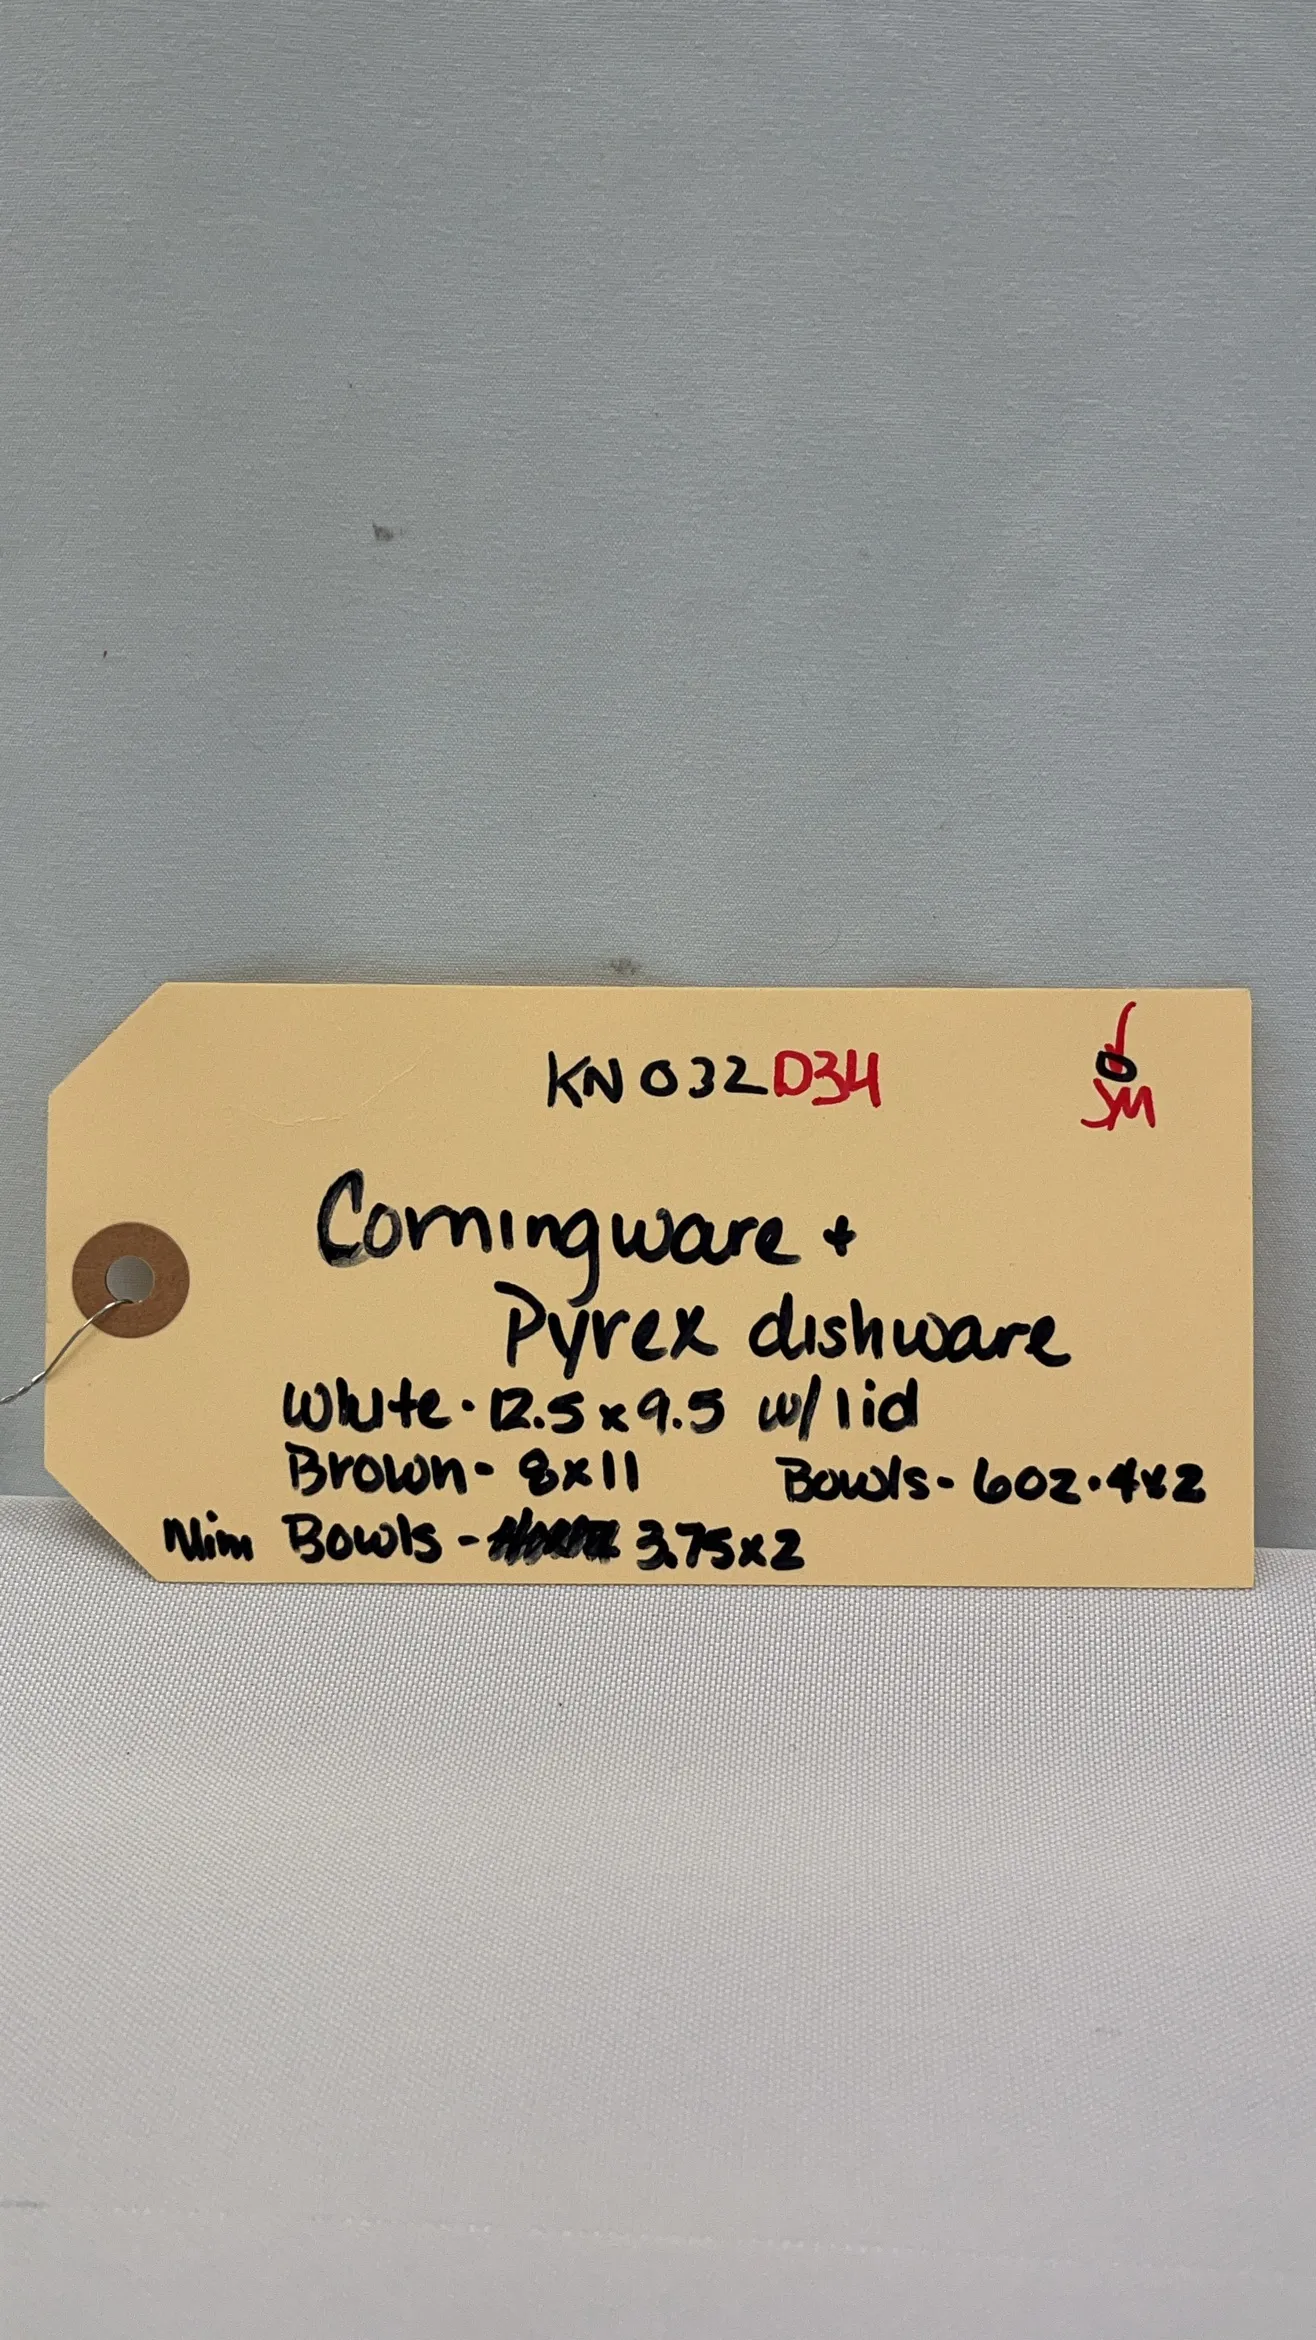 KN032D34
JM
Corningware +
Pyrex dishware
White · 12.5 x 9.5 w/ lid
Brown - 8x11
Bowls - 6oz · 4x2
Mini Bowls - 3.75x2